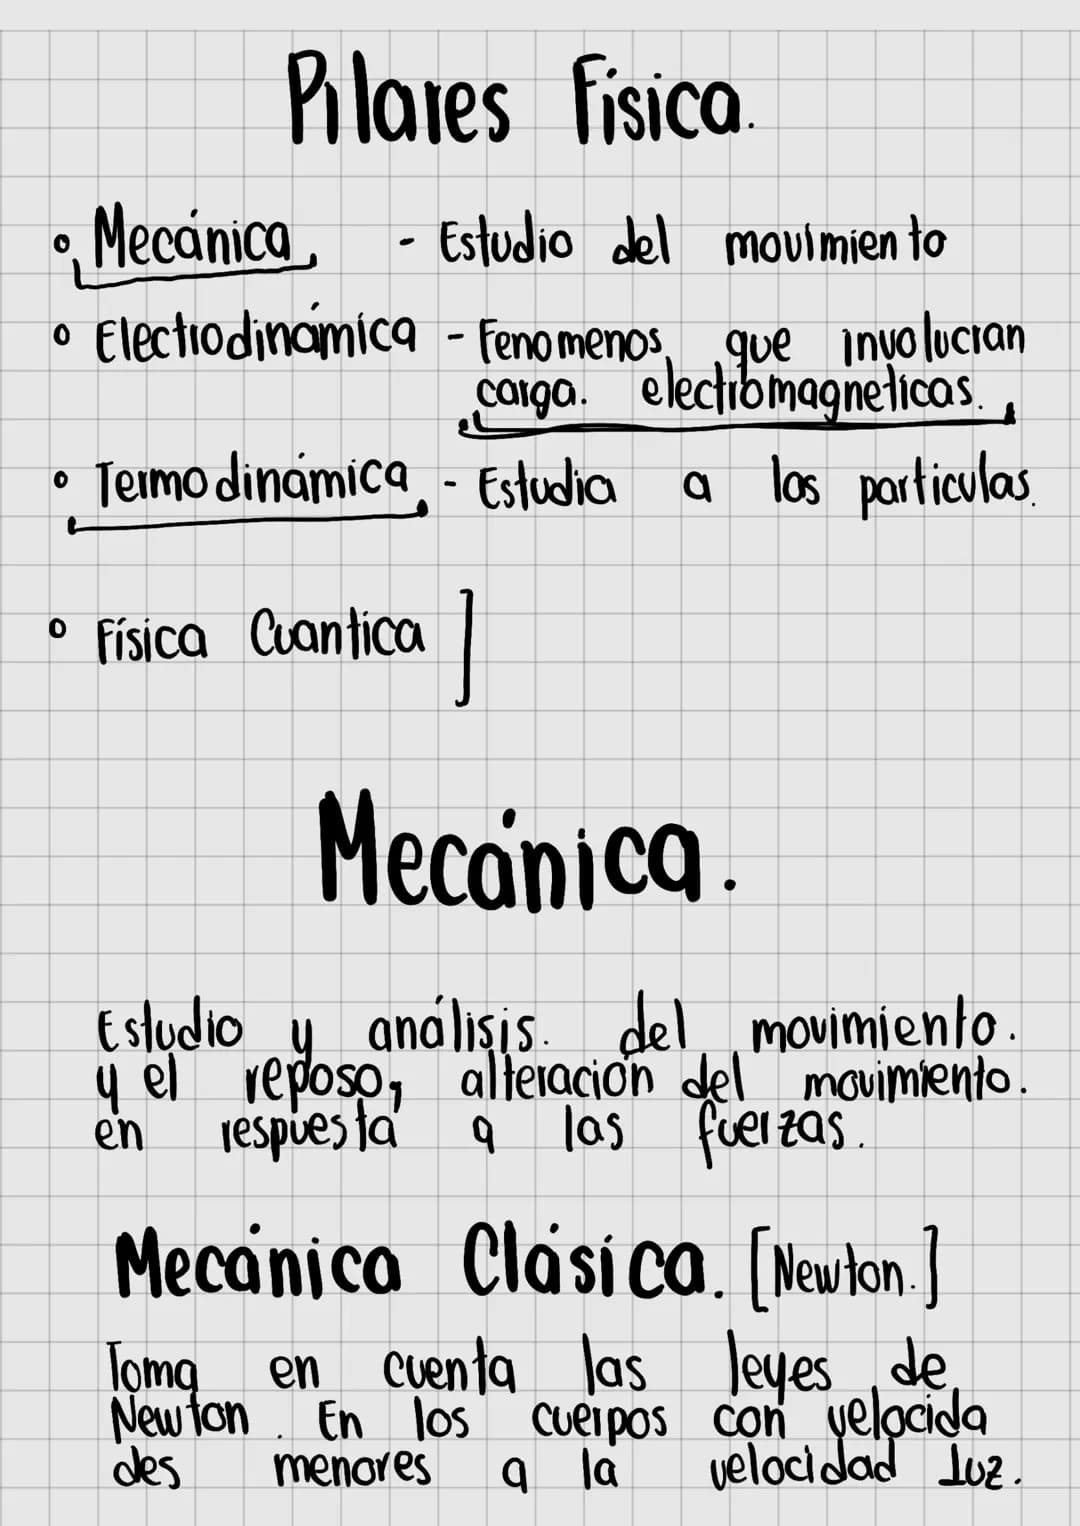 Pilares Física.
• Mecánica. - Estudio del movimiento
• Electrodinámica - Fenomenos que involucran
carga. electromagneticas.
• Termodinámica - Estudia a las particulas.
• Física Cuantica ]
Mecánica.
Estudio y análisis. del movimiento.
y el reposo, alteración del movimiento.
en respuesta a las fuerzas.
Mecánica Clásica. [Newton.]
Toma en cuenta las leyes de
Newton. En los cuerpos con velocida
des menores a la velocidad luz.